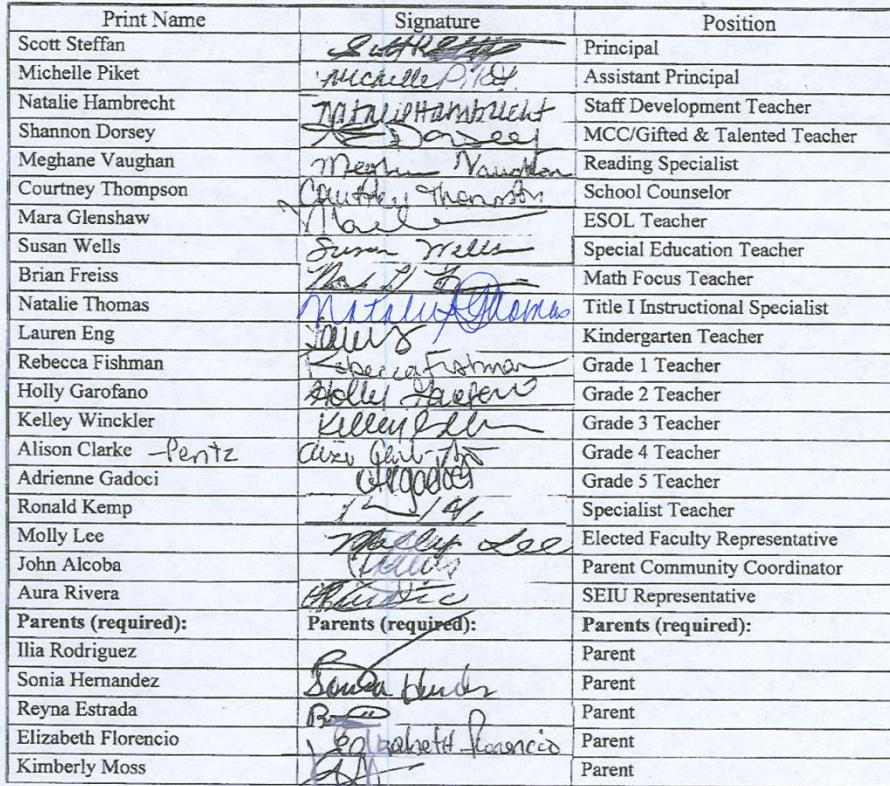 Print Name Signature Position
Scott Steffan Principal
Michelle Piket Michelle Piket Assistant Principal
Natalie Hambrecht Natalie Hambrecht Staff Development Teacher
Shannon Dorsey Dorsey MCC/Gifted & Talented Teacher
Meghane Vaughan Vaughan Reading Specialist
Courtney Thompson Courtney Thompson School Counselor
Mara Glenshaw ESOL Teacher
Susan Wells Susan Wells Special Education Teacher
Brian Freiss Math Focus Teacher
Natalie Thomas Natalie Thomas Title I Instructional Specialist
Lauren Eng Kindergarten Teacher
Rebecca Fishman Rebecca Fishman Grade 1 Teacher
Holly Garofano Holly Garofano Grade 2 Teacher
Kelley Winckler Kelley Grade 3 Teacher
Alison Clarke -Peritz Grade 4 Teacher
Adrienne Gadoci Gadoci Grade 5 Teacher
Ronald Kemp Specialist Teacher
Molly Lee Molly Lee Elected Faculty Representative
John Alcoba Parent Community Coordinator
Aura Rivera SEIU Representative
Parents (required): Parents (required): Parents (required):
Ilia Rodriguez Parent
Sonia Hernandez Sonia Parent
Reyna Estrada Parent
Elizabeth Florencio Elizabeth Florencio Parent
Kimberly Moss Parent